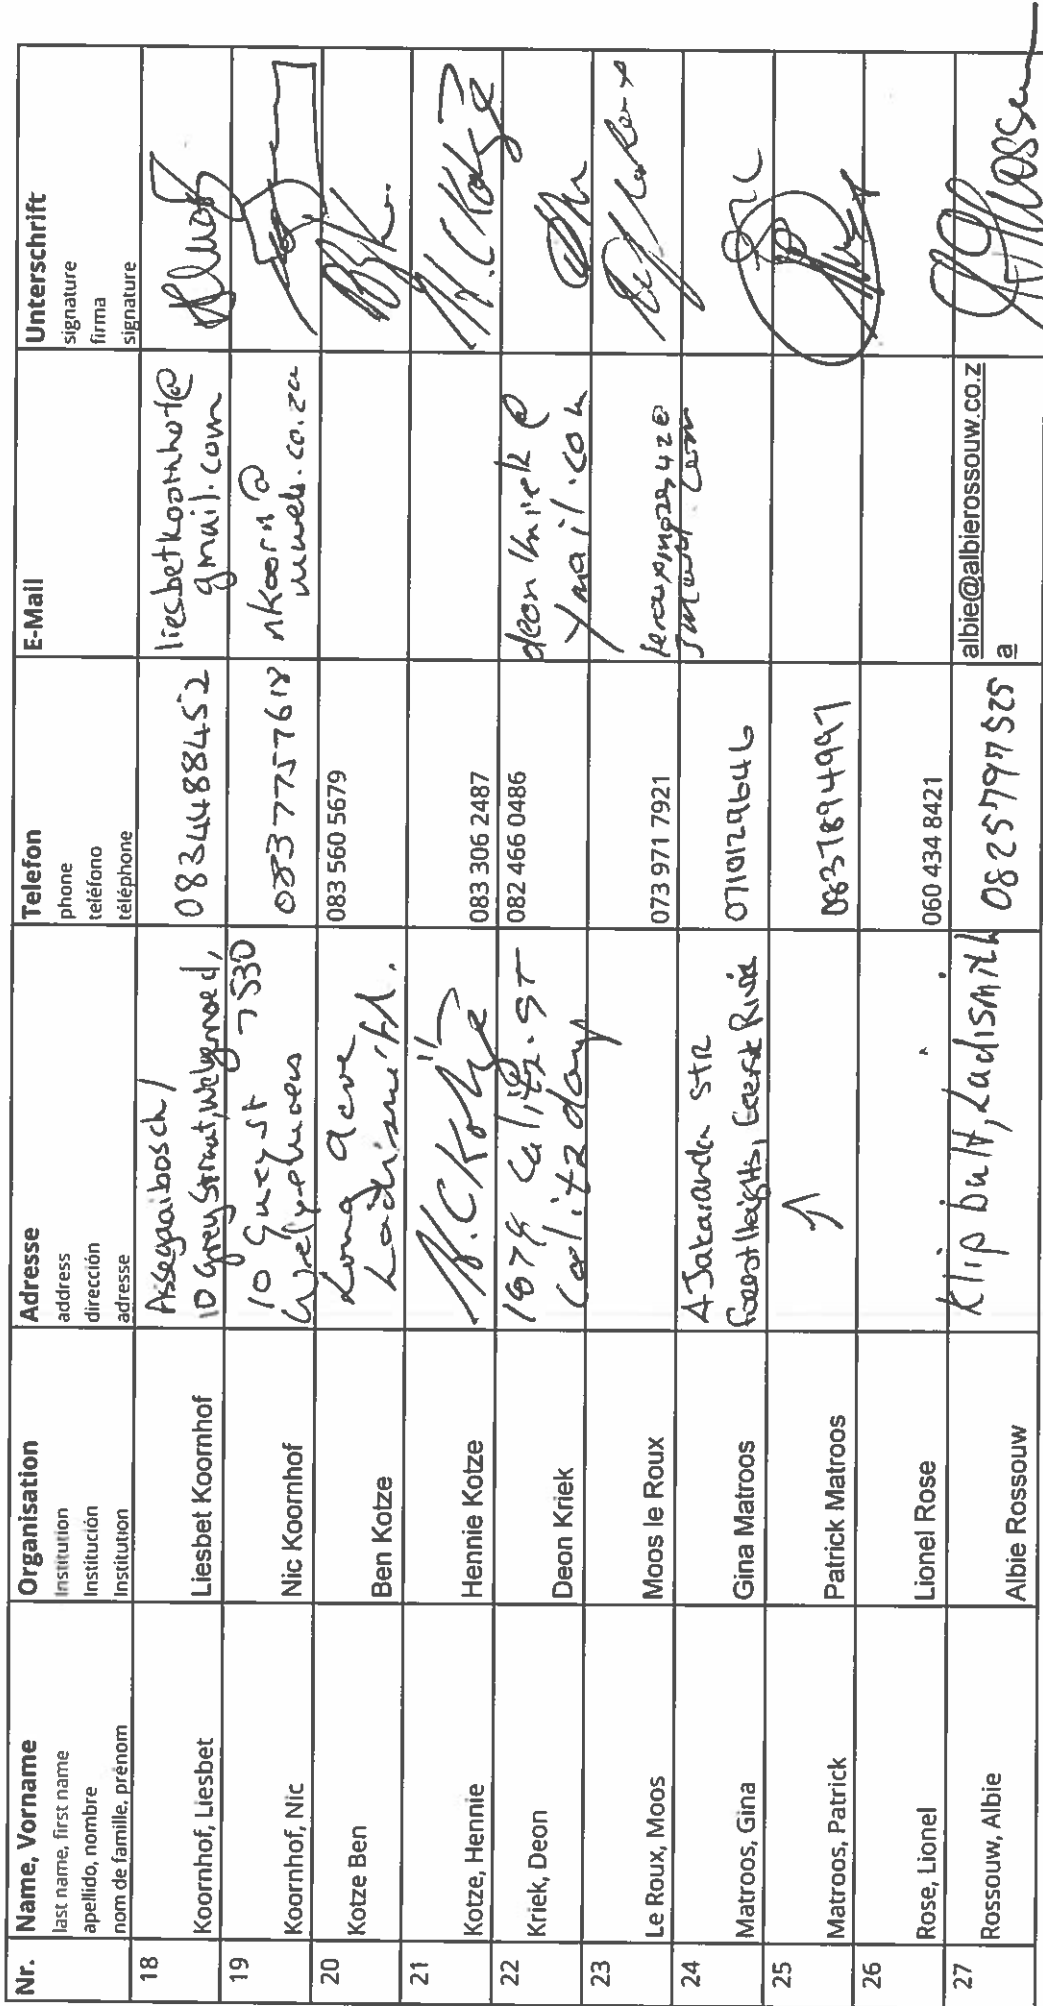 Nr.
Name, Vorname
last name, first name
apellido, nombre
nom de famille, prénom
Organisation
Institution
Institución
Institution
Adresse
address
dirección
adresse
Telefon
phone
teléfono
téléphone
E-Mail
Unterschrift
signature
firma
signature
18
Koornhof, Liesbet
Liesbet Koornhof
Assegaaibosch,
10 Grey Straat, Welgemoed,
0834488452
liesbetkoornhof@
gmail.com
19
Koornhof, Nic
Nic Koornhof
10 Grey St 7530
0837757618
nkoorn@
mweb.co.za
20
Kotze Ben
Ben Kotze
Long Acre
Ladismith.
083 560 5679
21
Kotze, Hennie
Hennie Kotze
H.C Kotze
083 306 2487
H.C Kotze
22
Kriek, Deon
Deon Kriek
Calitz ST
Calitzdorp
082 466 0486
deonkriek@
ymail.com
23
Le Roux, Moos
Moos le Roux
073 971 7921
24
Matroos, Gina
Gina Matroos
4 Jakaranda STR
Forest Heights, Eerste Rivier
0710129646
25
Matroos, Patrick
Patrick Matroos
0637894997
26
Rose, Lionel
Lionel Rose
060 434 8421
27
Rossouw, Albie
Albie Rossouw
Klipbult, Ladismith
0825797525
albie@albierossouw.co.z
a